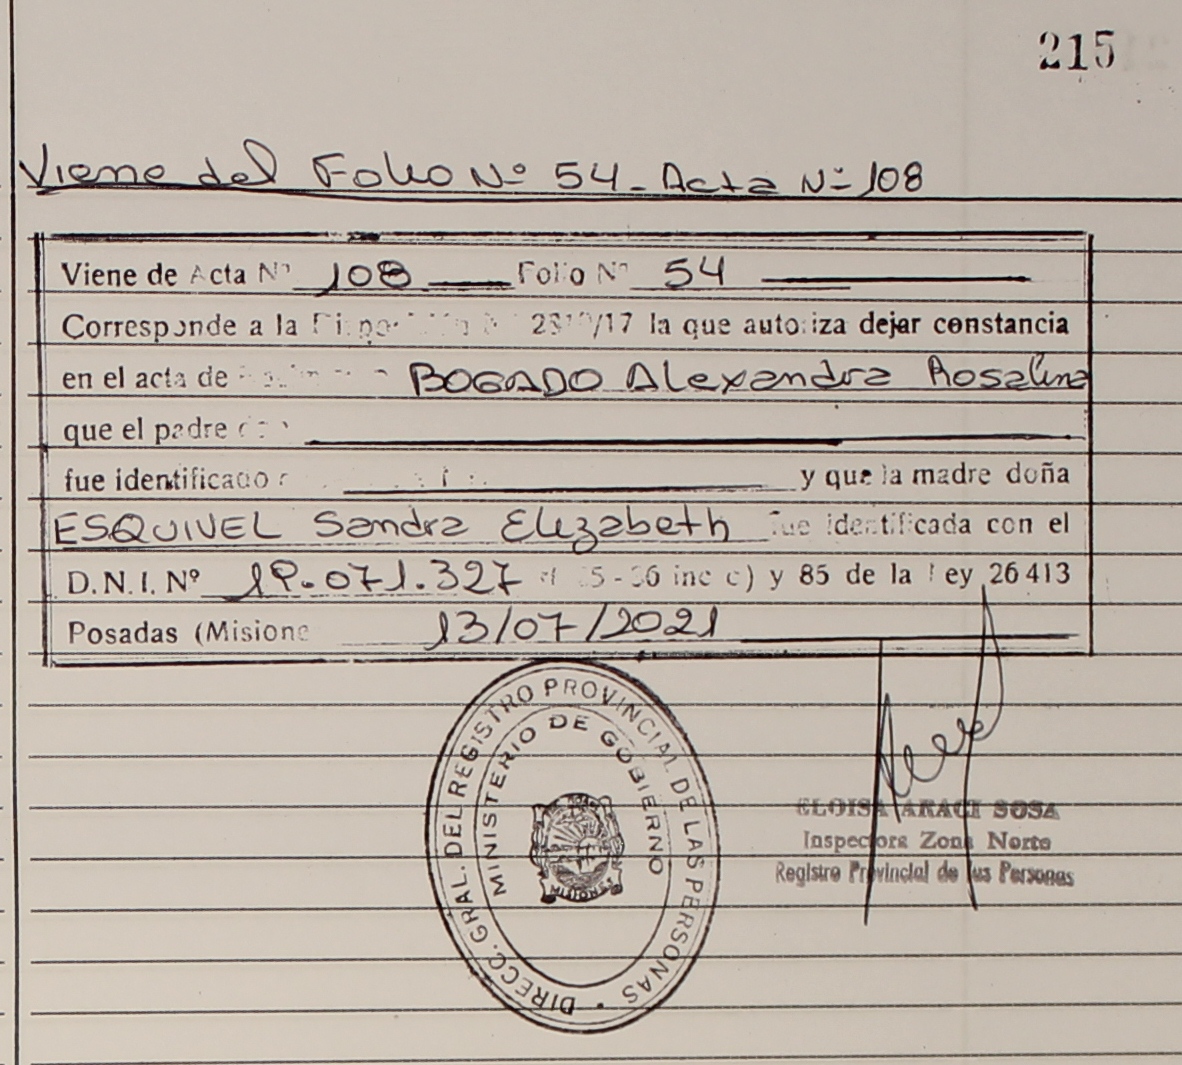 215
Viene del Folio Nº 54 - Acta Nº 108
Viene de Acta Nº 108 Folio Nº 54
Corresponde a la /17 la que autoriza dejar constancia
en el acta de BOGADO Alexandra Rosalina
que el padre
fue identificado y que la madre doña
ESQUIVEL Sandra Elizabeth fue identificada con el
D.N.I. Nº 19.071.327 inc c) y 85 de la Ley 26413
Posadas (Misione 13/07/2021
DIRECC. GRAL. DEL REGISTRO PROVINCIAL DE LAS PERSONAS
MINISTERIO DE GOBIERNO
MISIONES
ELOISA ARACI SOSA
Inspectora Zona Norte
Registro Provincial de las Personas